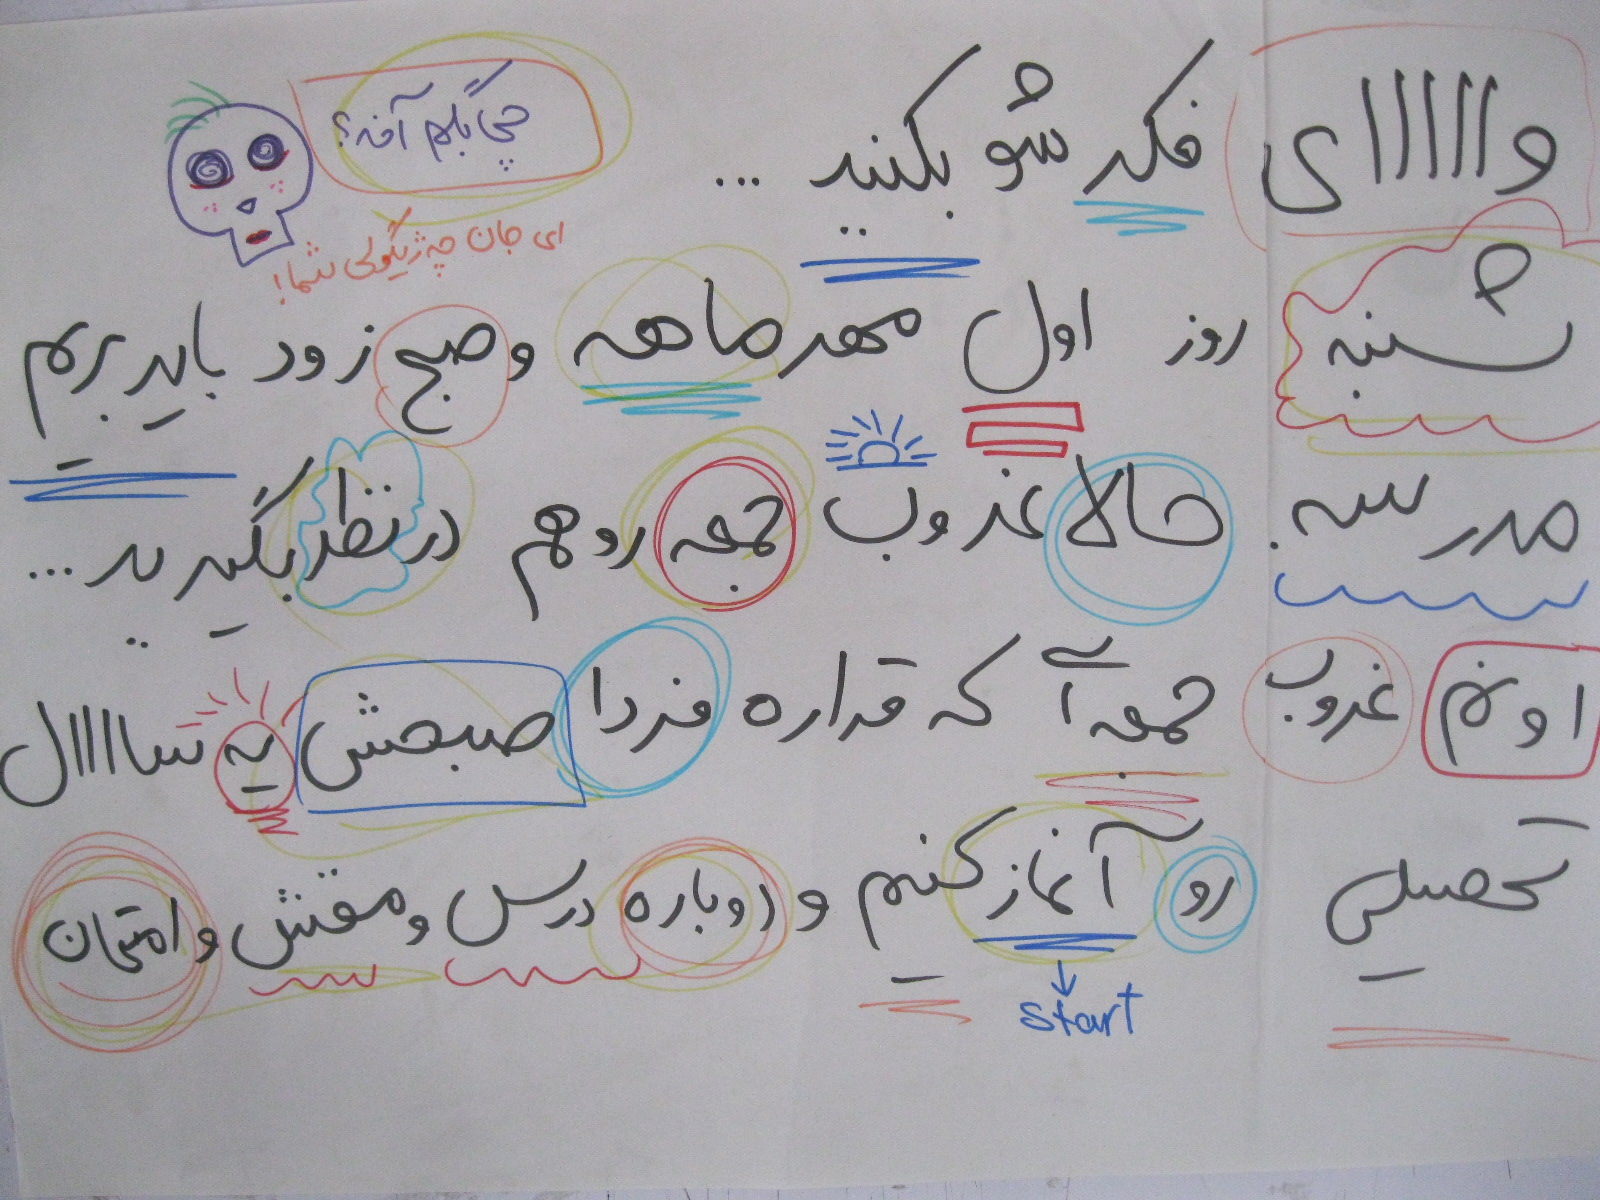 واااااای فکر شو بکنید ...
چی بگم آخه؟
ای جان چه ژیگولی شما!
شنبه روز اول مهر ماهه و صبح زود باید بریم
مدرسه. حالا غروب جمعه رو هم در نظر بگیرید ...
اونم غروب جمعه ای که قراره فردا صبحش یه ساااال
تحصیلی رو آغاز کنیم و دوباره درس و مشق و امتحان
start